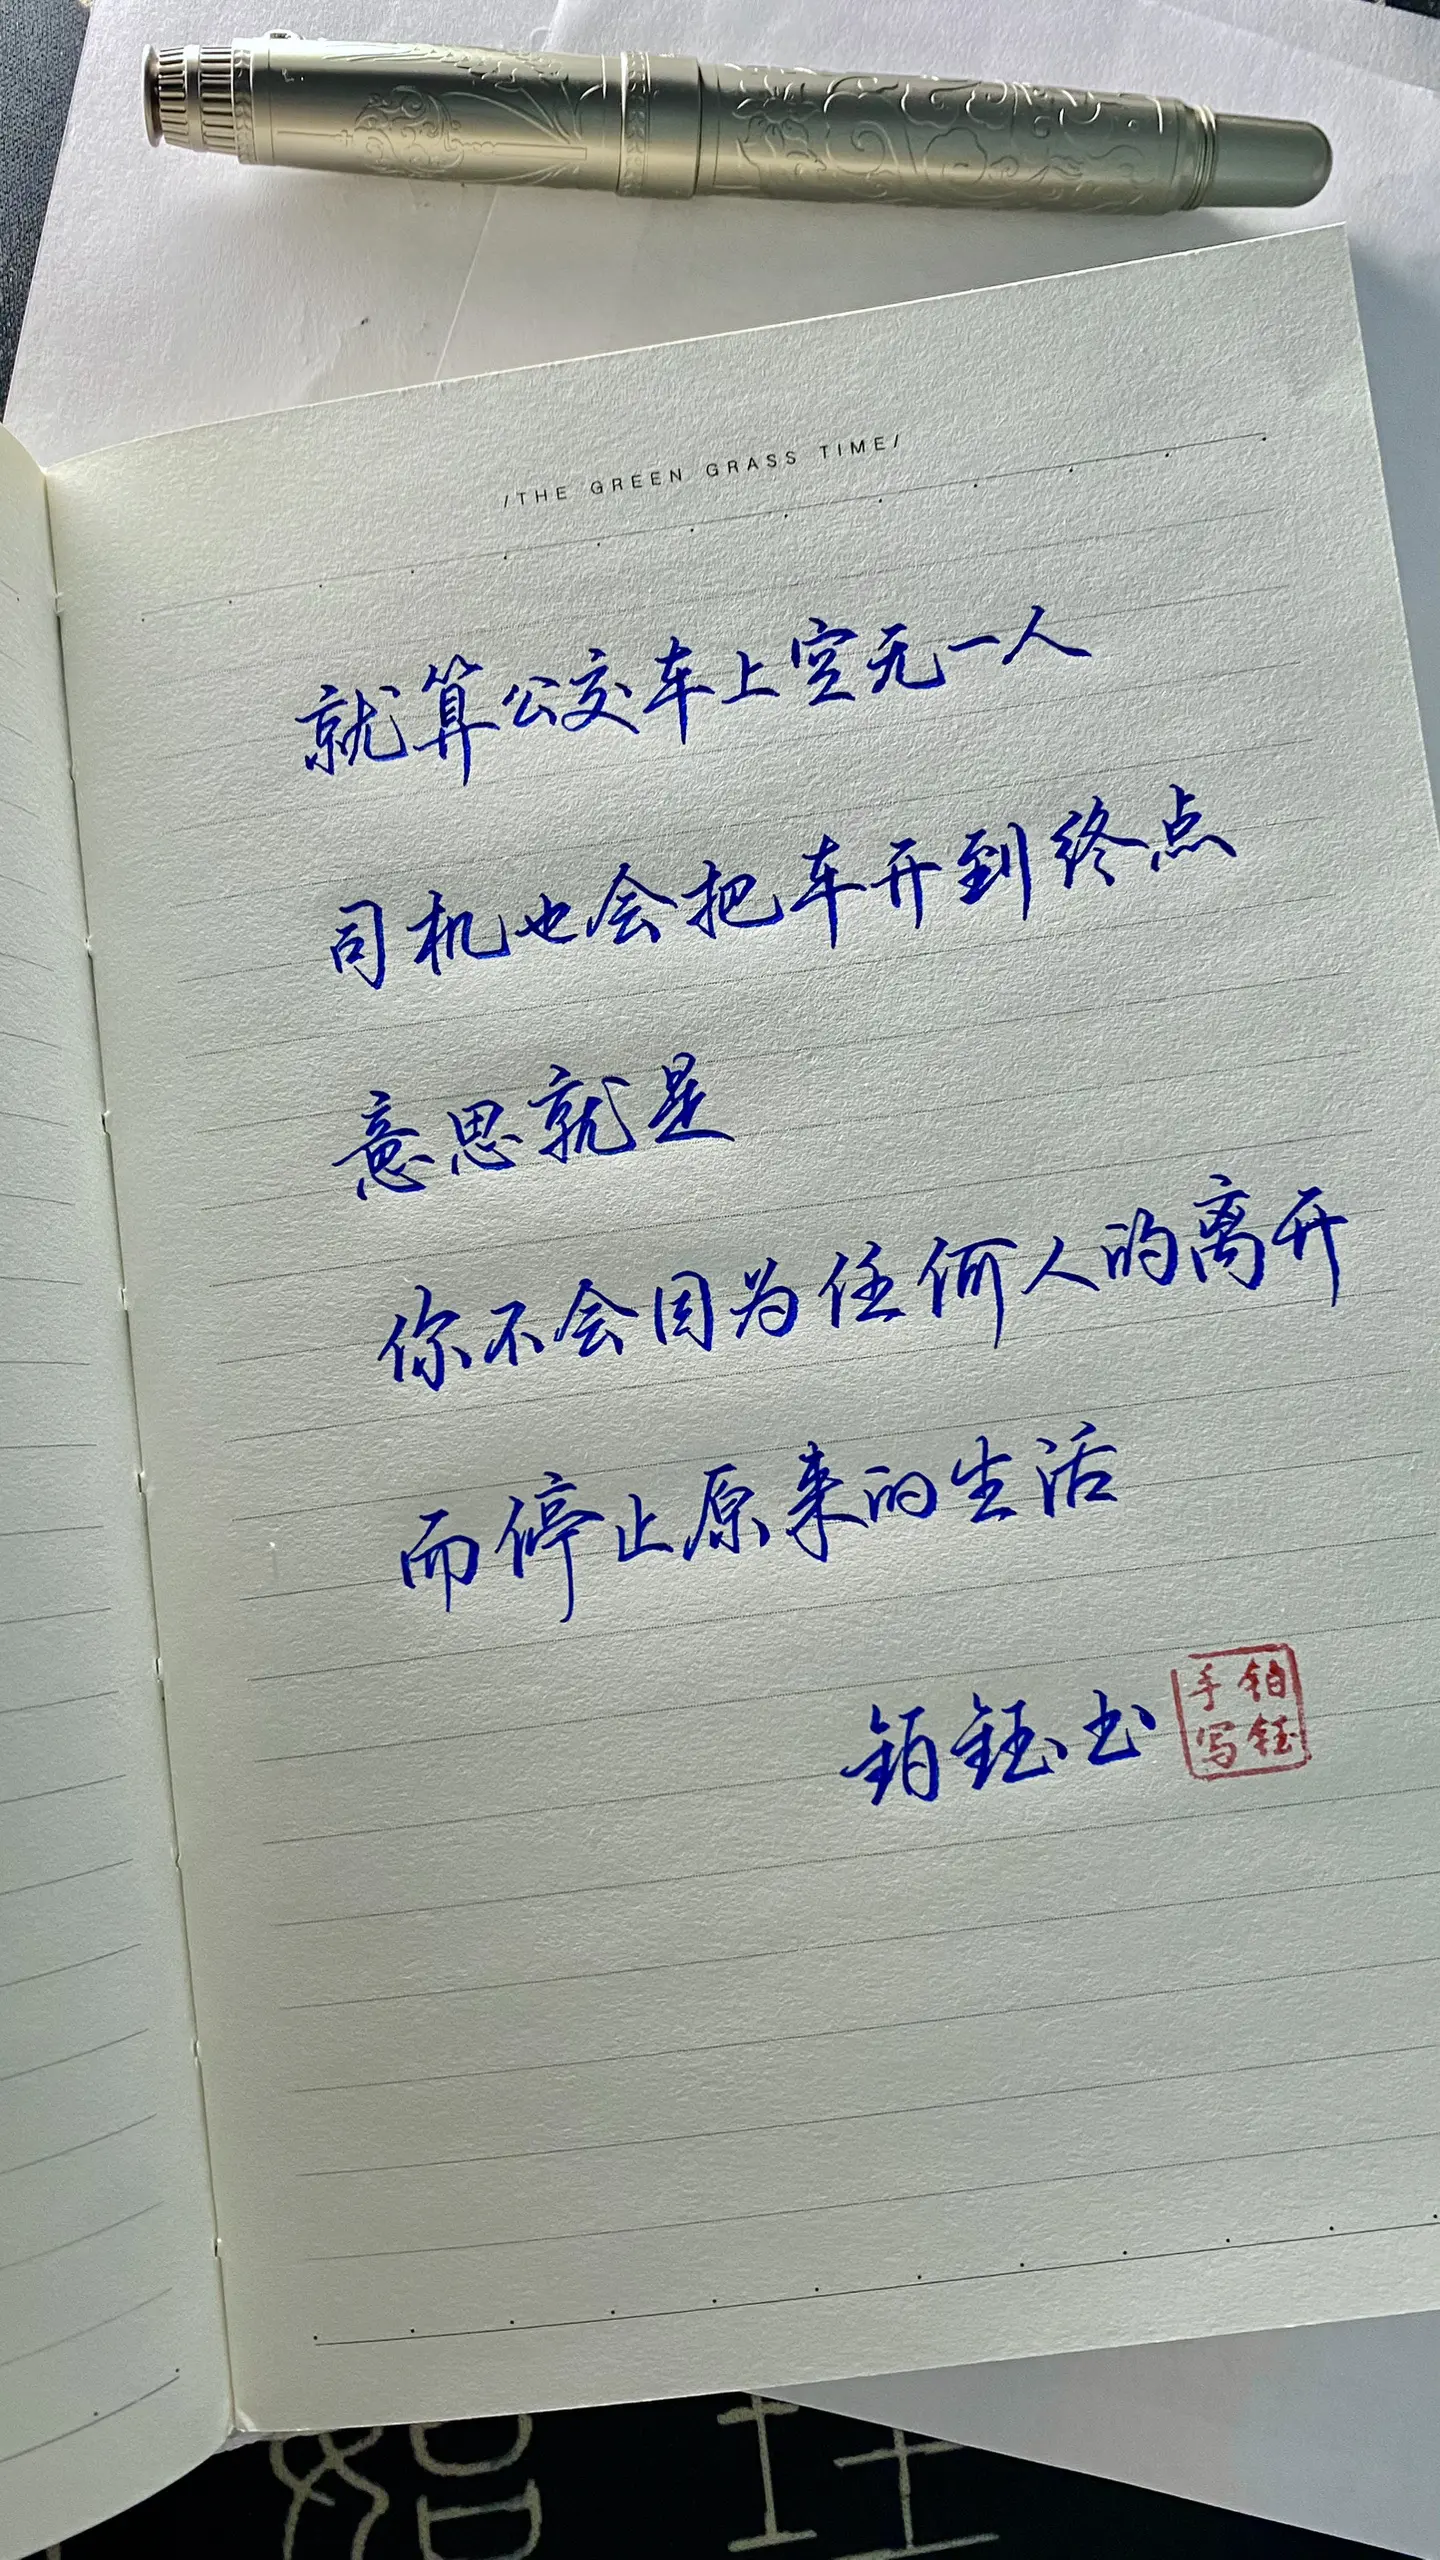 /THE GREEN GRASS TIME/
就算公交车上空无一人
司机也会把车开到终点
意思就是
你不会因为任何人的离开
而停止原来的生活
铂钰书
铂钰
手写